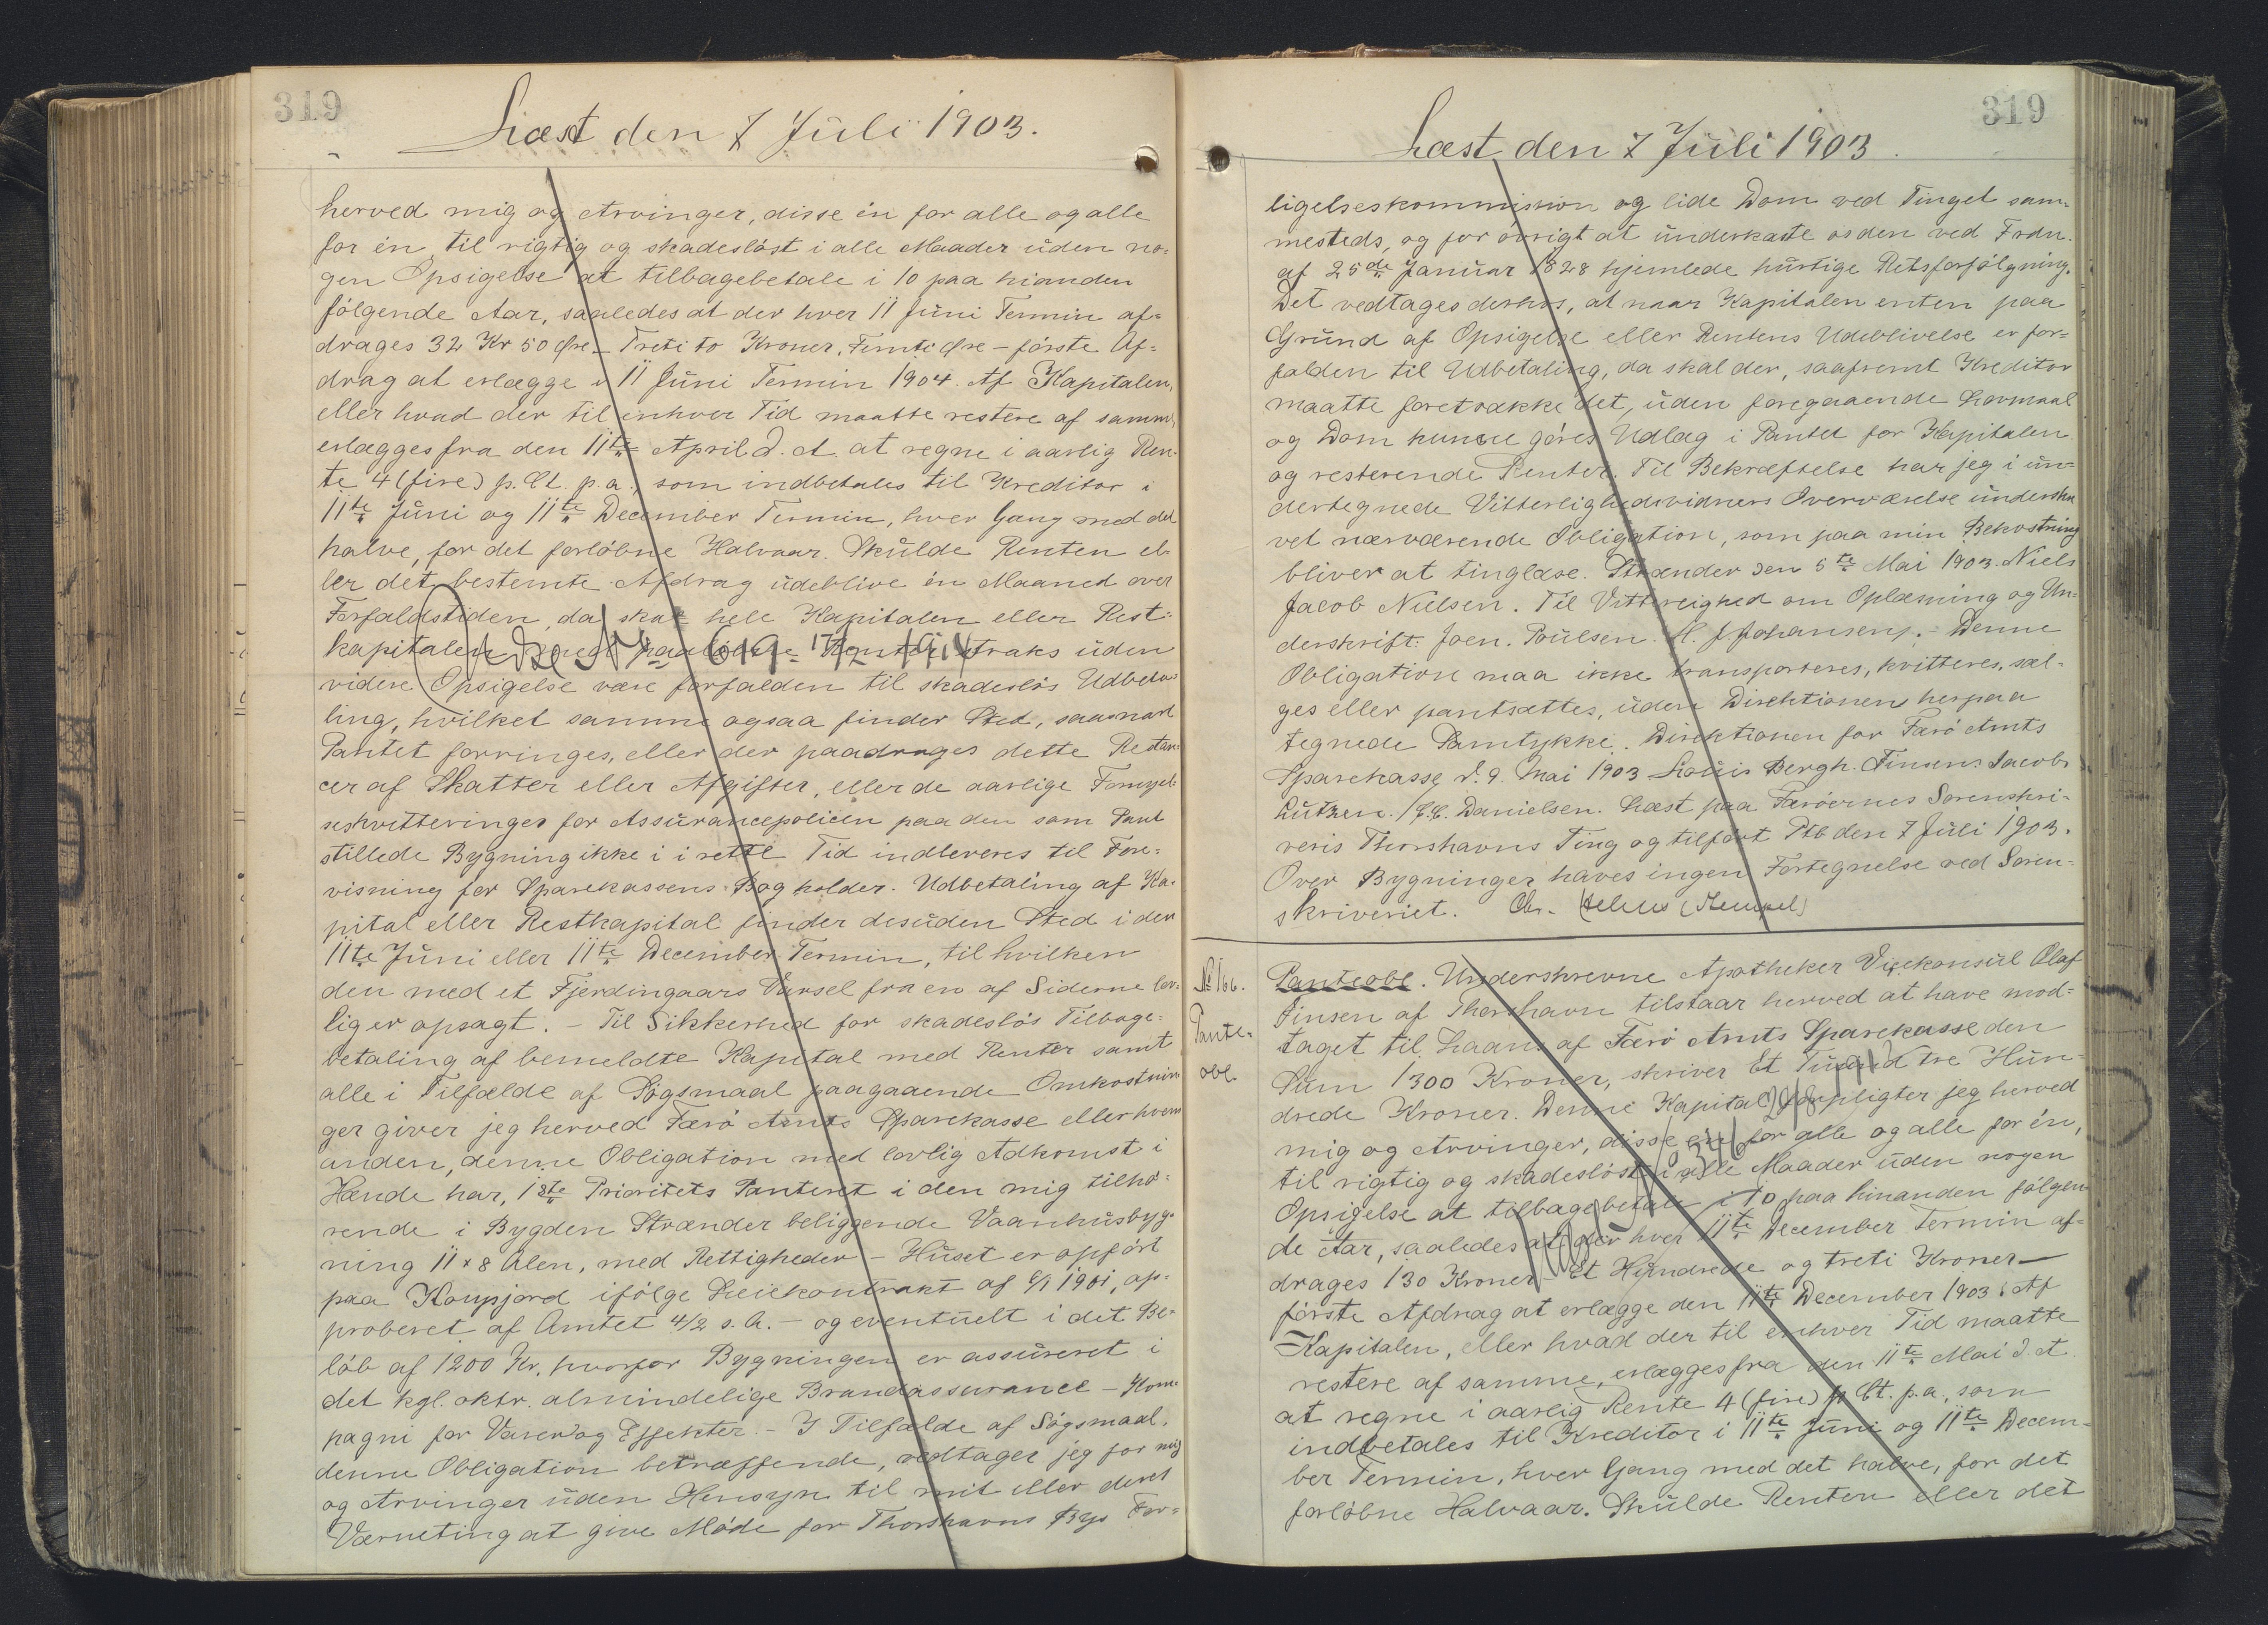 319
Læst den 7 Juli 1903.
herved mig og Arvinger, disse én for alle og alle
for én, til rigtig og skadesløst i alle Maader uden no-
gen Opsigelse at tilbagebetale i 10 paa hianden
følgende Aar, saaledes at der hver 11 Juni Termin af-
drages 32 Kr 50 Øre - Treti to Kroner, Femti Øre - første Af-
drag at erlægge i 11 Juni Termin 1904. Af Kapitalen,
eller hvad der til enhver Tid maatte restere af samme,
erlægges fra den 11te April d. A. at regne i aarlig Ren-
te 4 (fire) p. Ct. p.a., som indbetales til Kreditor i
11te Juni og 11te December Termin, hver Gang med det
halve, for det forløbne Halvaar. Skulde Renten el-
ler det bestemte Afdrag udeblive én Maaned over
Forfaldstiden, da skal hele Kapitalen eller Rest-
kapitalen med paaløbne Renter straks uden
videre Opsigelse være forfalden til skadesløs Udbeta-
ling, hvilket samme ogsaa finder Sted, saasnart
Pantet forringes, eller der paadrages dette Restan-
cer af Skatter eller Afgifter, eller de aarlige Fornyel-
seskvitteringer for Assurancepolicen paa den som Pant
stillede Bygning ikke i i rette Tid indleveres til Fore-
visning for Sparekassens Bogholder. Udbetaling af Ka-
pital eller Restkapital finder desuden Sted i den
11te Juni eller 11te December Termin, til hvilken
den med et Fjerdingaars Varsel fra en af Siderne lov-
lig er opsagt. - Til Sikkerhed for skadesløs Tilbage-
betaling af bemeldte Kapital med Renter samt
alle i Tilfælde af Søgsmaal paagaaende Omkostnin-
ger giver jeg herved Færø Amts Sparekasse eller hvem
anden, denne Obligation med lovlig Adkomst i
Hænde har, 1ste Prioritets Panteret i den mig tilhø-
rende i Bygden Strænder beliggende Vaanhusbyg-
ning 11 x 8 Alen, med Rettigheder - Huset er opført
paa Kongsjord ifølge Leiekontrakt af 6/1 1901, ap-
proberet af Amtet 4/2 s. A. - og eventuelt i det Be-
løb af 1200 Kr, hvorfor Bygningen er assureret i
det kgl. oktr. almindelige Brandassurance - Kom-
pagni for Varer og Effekter. - I Tilfælde af Søgsmaal,
denne Obligation betræffende, vedtager jeg for mig
og Arvinger uden Hensyn til mit eller deres
Værneting at give Møde for Thorshavns Bys For-
319
Læst den 7 Juli 1903.
ligelseskommission og lide Dom ved Tinget sam-
mesteds, og for øvrigt at underkaste os den ved Frdn.
af 25de Januar 1828 hjemlede hurtige Retsforfølgning.
Det vedtages derhos, at naar Kapitalen enten paa
Grund af Opsigelse eller Rentens Udeblivelse er for-
falden til Udbetaling, da skal der, saafremt Kreditor
maatte foretrække det, uden foregaaende Lovmaal
og Dom kunne gøres Udlæg i Pantet for Kapitalen
og resterende Renter. Til Bekræftelse har jeg i un-
dertegnede Vitterlighedsvidners Overværelse underskre
vet nærværende Obligation, som paa min Bekostning
bliver at tinglæse. Strænder den 5te Mai 1903. Niels
Jacob Nielsen. Til Vitterlighed om Oplæsning og Un-
derskrift: Joen. Poulsen. M. J Johansen. - Denne
Obligation maa ikke transporteres, kvitteres, sæl-
ges eller pantsættes, uden Direktionens herpaa
tegnede Samtykke. Direktionen for Færø Amts
Sparekasse d. 9. Mai 1903 Louis Bergh. Finsen. Jacob
Lützen. / C.C. Danielsen. Læst paa Færøernes Sorenskri-
veris Thorshavns Ting og tilført Ptb den 7 Juli 1903.
Over Bygninger haves ingen Fortegnelse ved Soren-
skriveriet.
No 166.
Pante-
obl.
Panteobl. Underskrevne Apotheker Vicekonsul Olaf
Finsen af Thorshavn tilstaar herved at have mod-
taget til Laans af Færø Amts Sparekasse den
Sum 1300 Kroner, skriver Et Tusind tre Hun-
drede Kroner. Denne Kapital forpligter jeg herved
mig og Arvinger, disse én for alle og alle for én,
til rigtig og skadesløst i alle Maader uden nogen
Opsigelse at tilbagebetale i 10 paa hinanden følgen
de Aar, saaledes at der hver 11te December Termin af-
drages 130 Kroner - Et Hundrede og treti Kroner -
første Afdrag at erlægge den 11te December 1903. Af
Kapitalen, eller hvad der til enhver Tid maatte
restere af samme, erlægges fra den 11te Mai d. A.
at regne i aarlig Rente 4 (fire) p. Ct. p.a., som
indbetales til Kreditor i 11te Juni og 11te Decem-
ber Termin, hver Gang med det halve, for det
forløbne Halvaar. Skulde Renten eller det